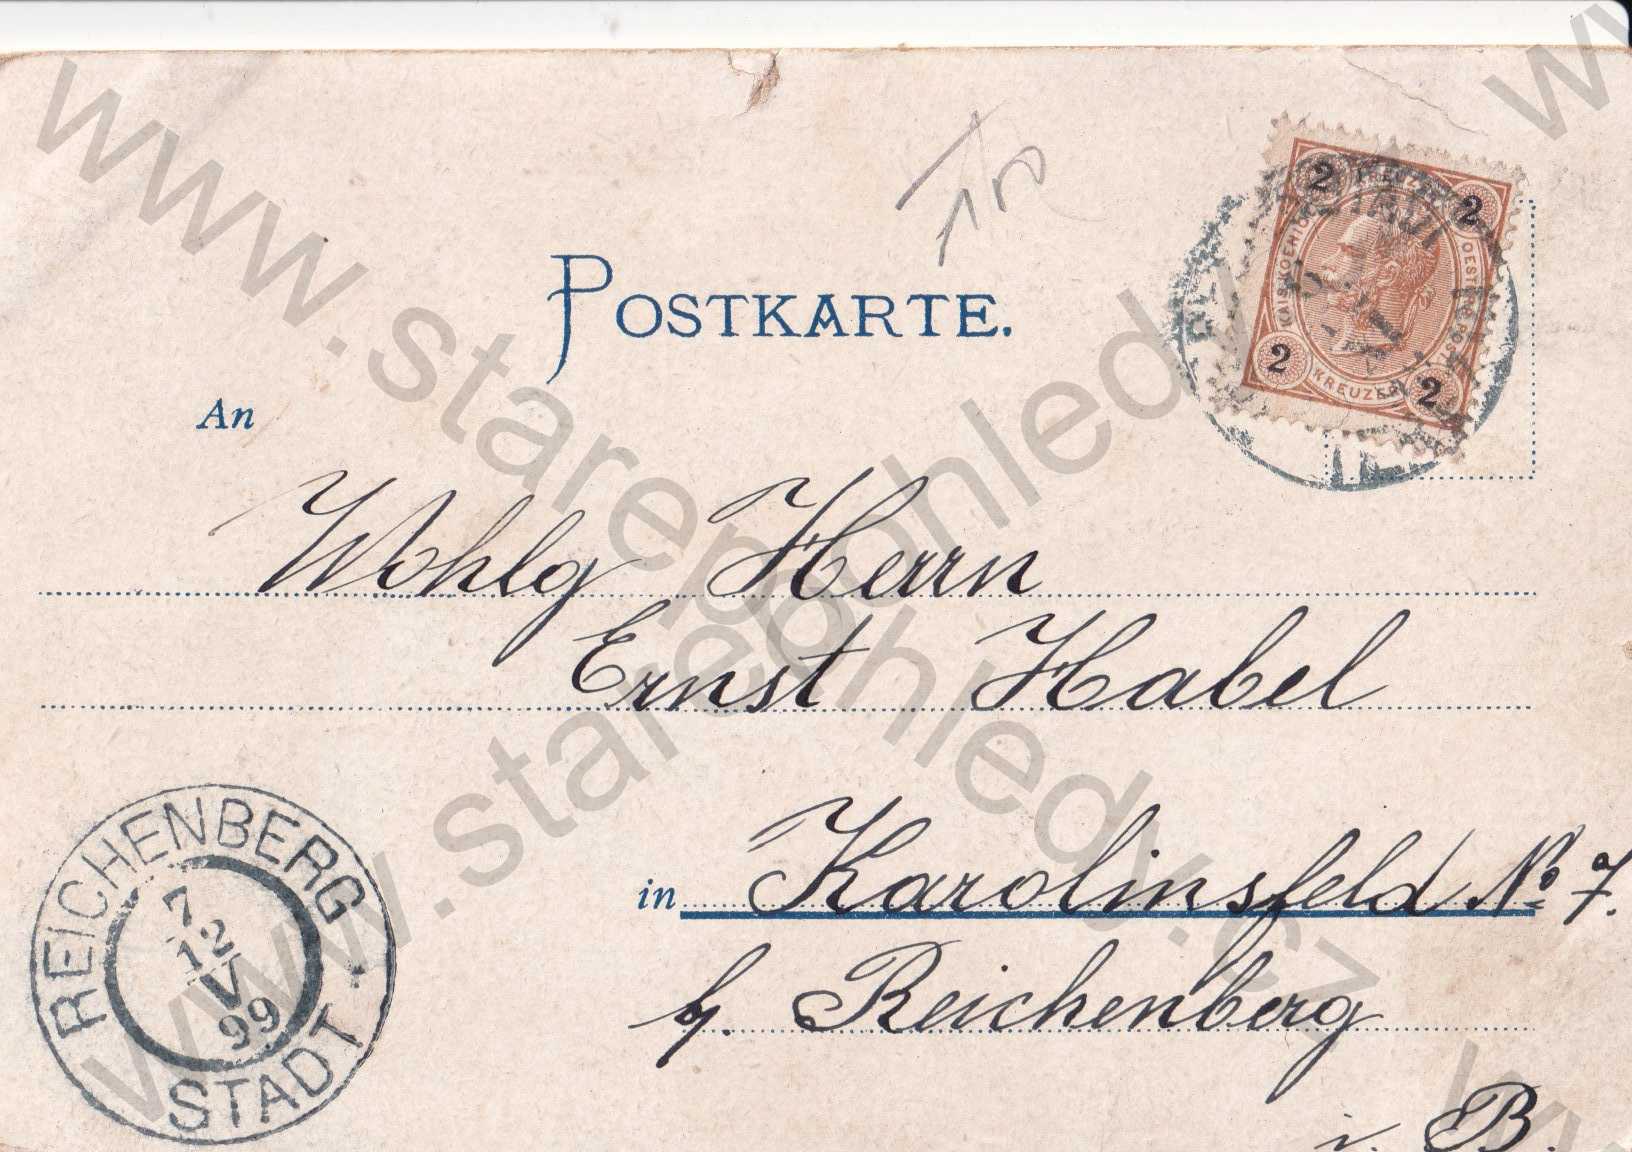 POSTKARTE.
2 KREUZER 2
KAIS. KOENIGL. OESTERR. POST
2 KREUZER 2
An
Wohlg Herrn
Ernst Habel
in Karolinsfeld No 7.
b. Reichenberg
i. B.
REICHENBERG
7
12
V
99
STADT
www.starepohledy.cz
www.starepohledy.cz